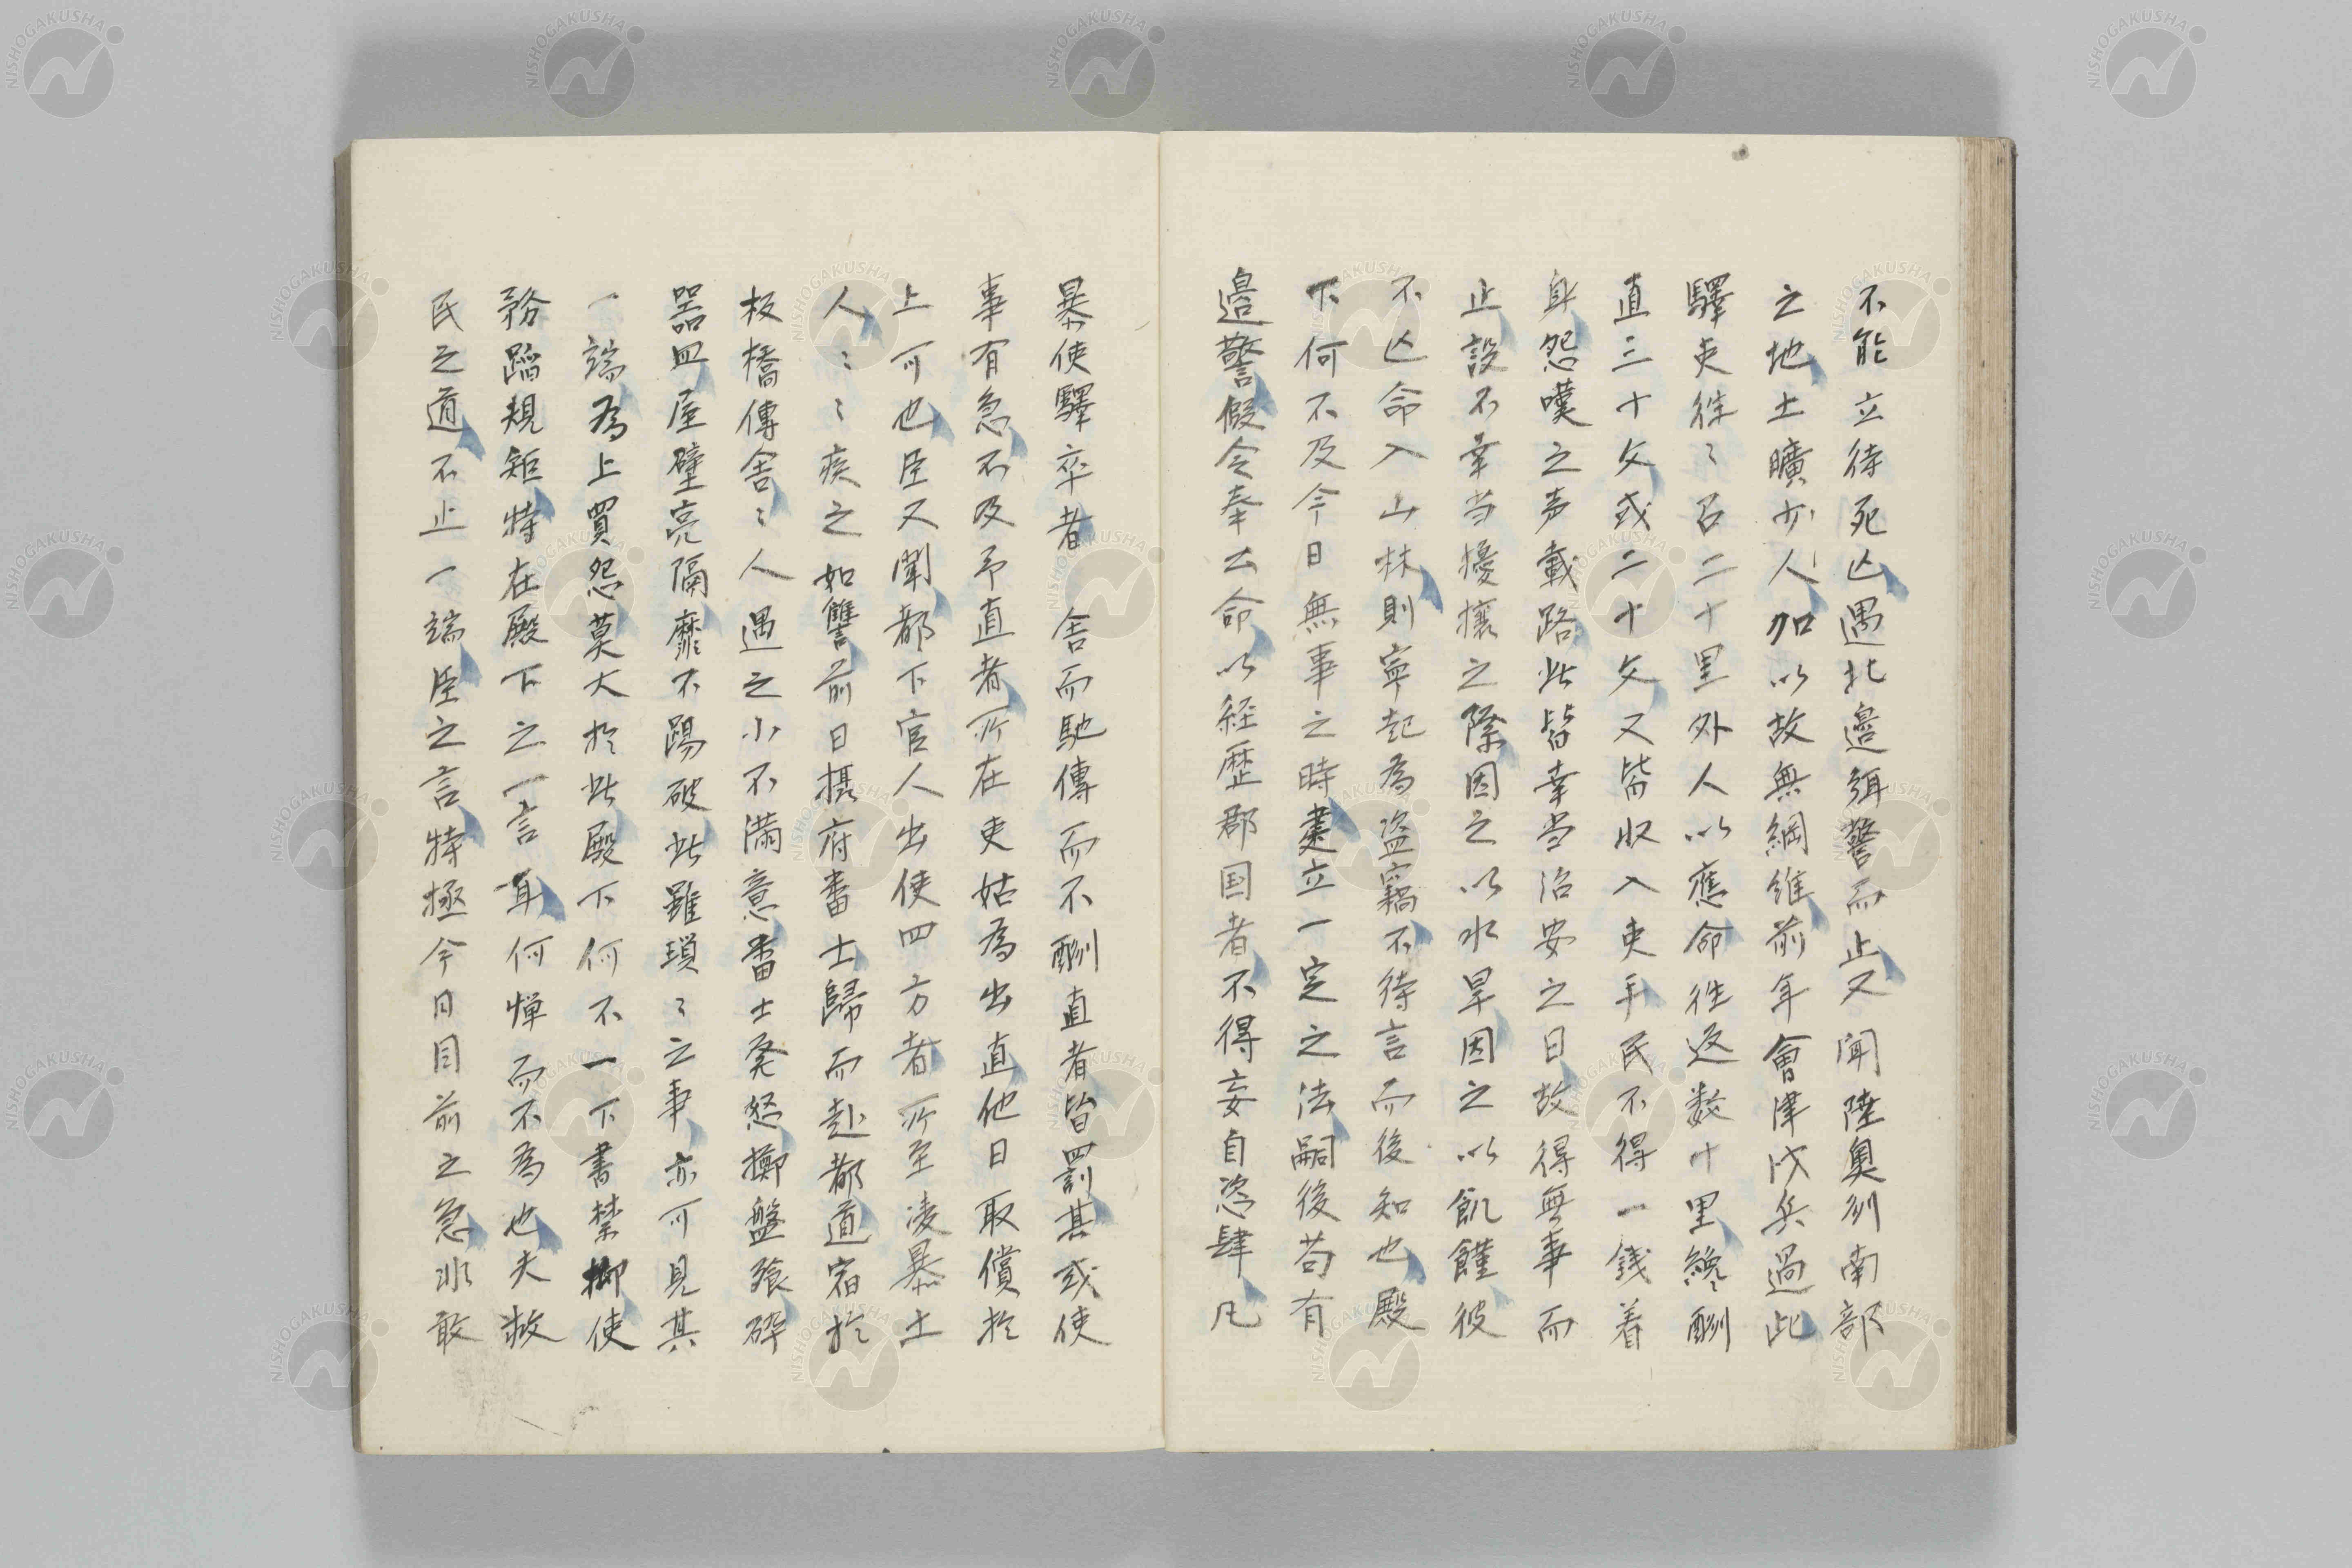 不能立待死亡遇北邉弭警而止又聞陸奥列南部
之地土曠少人加以故無綱維前年會津戍兵過此
驛吏徃〻召二十里外人以應命徃返数十里纔酬
直三十文或二十文又皆収入吏手民不得一銭着
身怨嘆之声載路此皆幸当治安之日故得無事而
止設不幸当擾攘之際因之以水旱因之以飢饉彼
不亡命入山林則寧起為盗竊不待言而後知也殿
下何不及今日無事之時建立一定之法嗣後苟有
邉警假令奉公命以経歴郡国者不得妄自恣肆凡
暴使驛卒者 舎而馳傳而不酬直者皆罰其或使
事有急不及予直者所在吏姑為出直他日取償於
上可也臣又聞都下官人出使四方者所至凌暴土
人〻〻疾之如讐前日攝府畨士歸而赴都道宿於
板橋傳舎〻人遇之小不満意畨士発怒擲盤飱砕
器皿屋壁亮隔靡不踢破此雖瑣〻之事亦可見其
一端為上買怨莫大於此殿下何不一下書禁抑使
務蹈規矩特在殿下之一言耳何惮而不為也夫救
民之道不止一端臣之言特極今日目前之急非敢